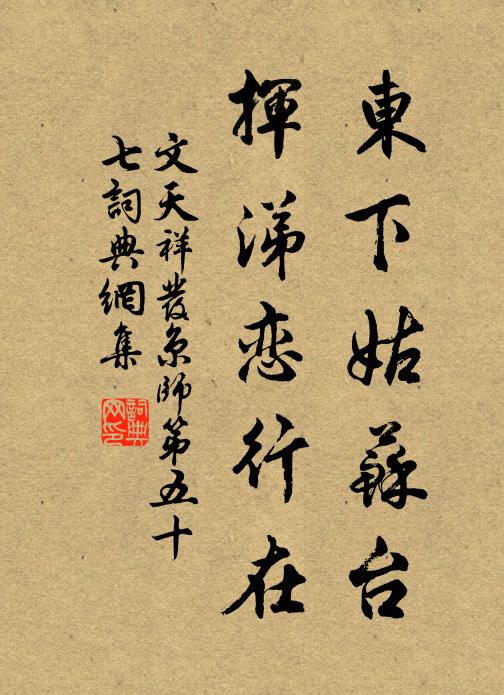 東下姑蘇台
揮涕恋行在
文天祥發京師第五十
七詞典網集
詞典网印